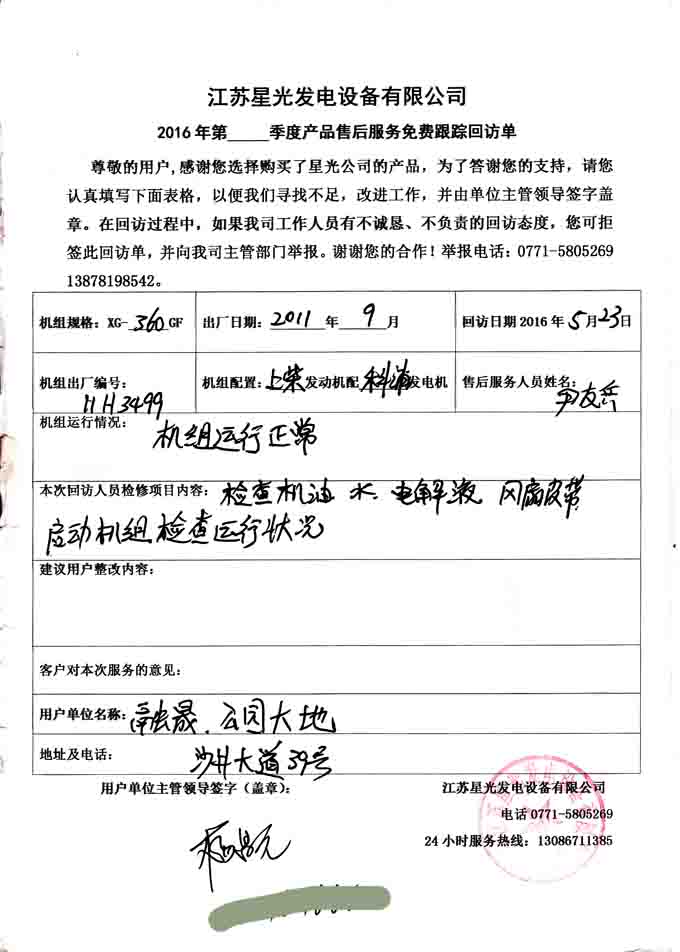 江苏星光发电设备有限公司
2016 年第_____季度产品售后服务免费跟踪回访单
尊敬的用户,感谢您选择购买了星光公司的产品，为了答谢您的支持，请您
认真填写下面表格，以便我们寻找不足，改进工作，并由单位主管领导签字盖
章。在回访过程中，如果我司工作人员有不诚恳、不负责的回访态度，您可拒
签此回访单，并向我司主管部门举报。谢谢您的合作！举报电话：0771-5805269
13878198542。
机组规格：XG-360GF 出厂日期：2011 年 9 月 回访日期 2016 年 5 月 23 日
机组出厂编号：HH3499 机组配置：上柴发动机配 科浦发电机 售后服务人员姓名：尹友兵
机组运行情况：机组运行正常
本次回访人员检修项目内容：检查机油 水 电解液 风扇皮带
启动机组 检查运行状况
建议用户整改内容：
客户对本次服务的意见：
用户单位名称：融晟.公园大地
地址及电话：沙井大道39号
用户单位主管领导签字（盖章）： 江苏星光发电设备有限公司
电话 0771-5805269
24 小时服务热线：13086711385